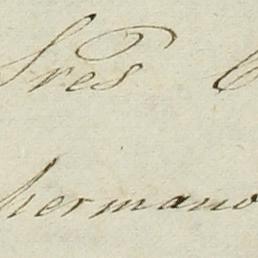 Sres
hermano